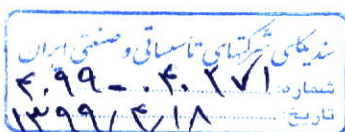 سندیکای شرکتهای تاسیساتی و صنعتی ایران
شماره: ۴۰۹۹-۰۴۰۲۷۱
تاریخ: ۱۳۹۹/۴/۱۸